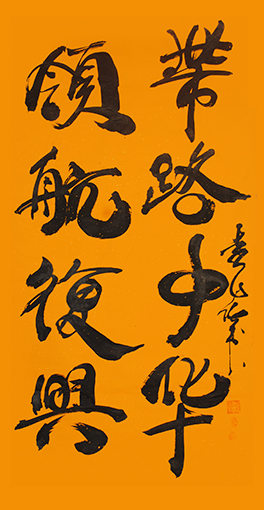 帶路中华
領航復興